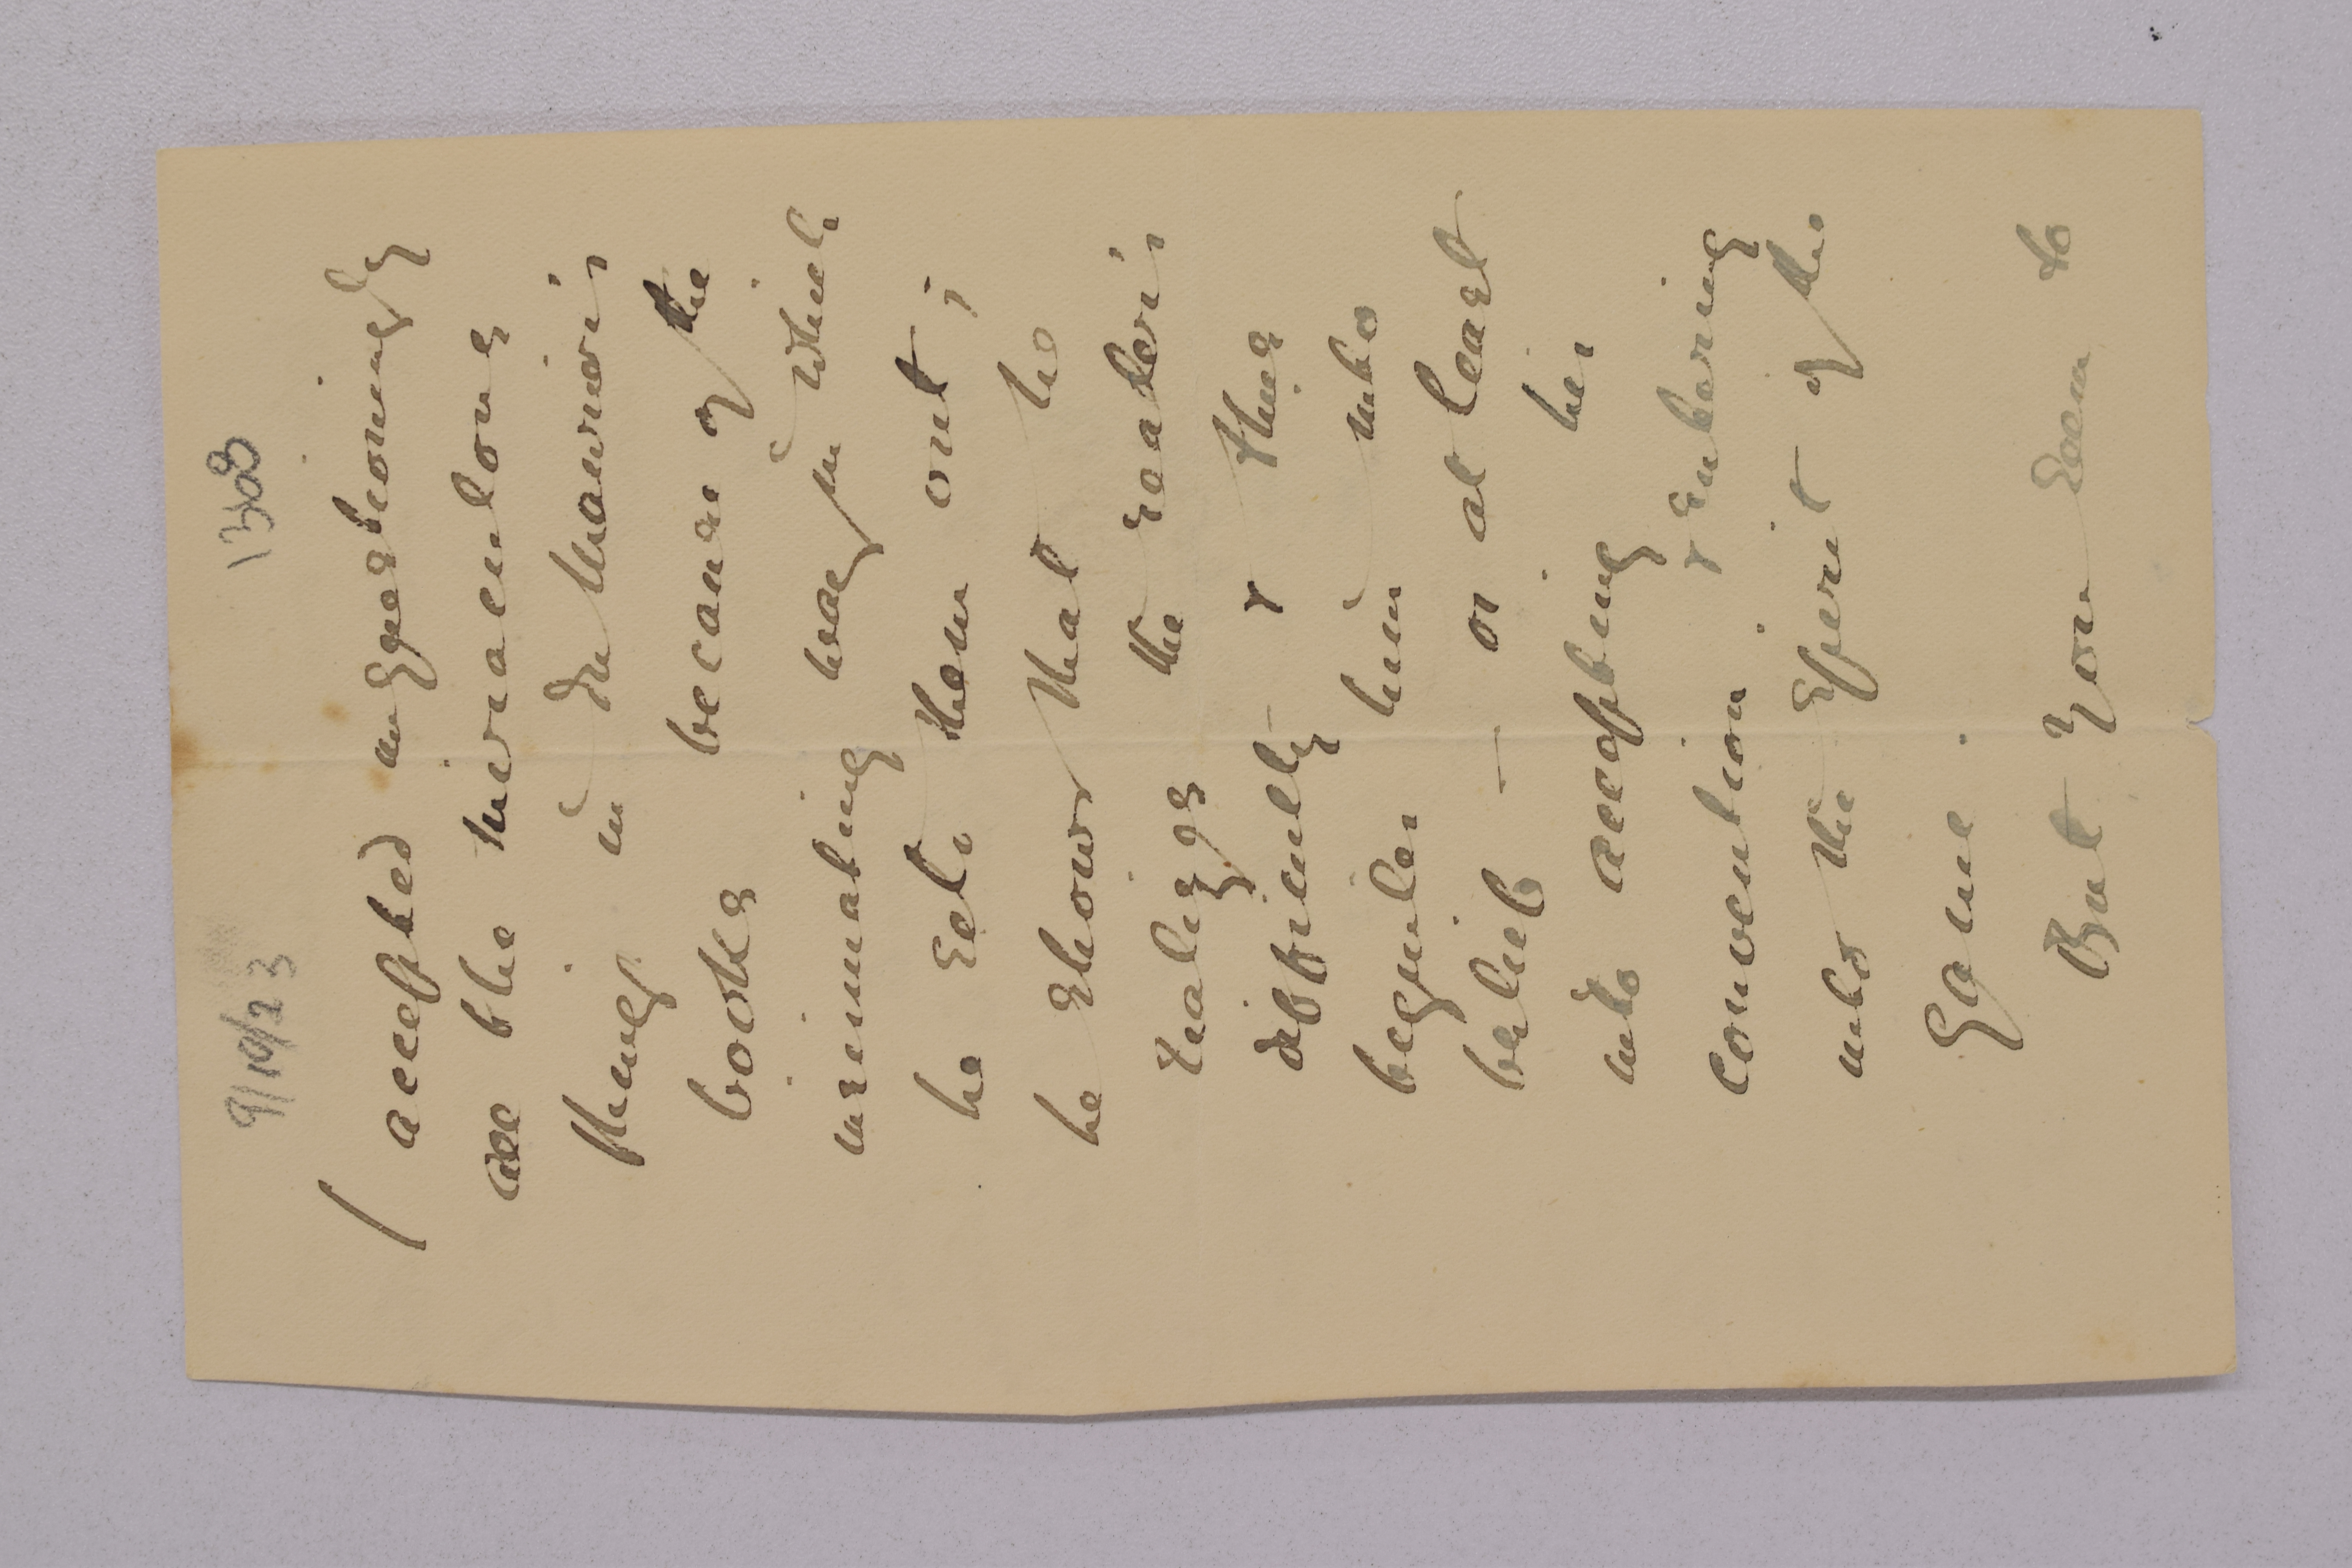 9/10/23 1308
I accepted unquestioningly
all the miraculous
things in Du Maurier's
books because of the
insinuating way in which
he sets them out;
he shows that he
realizes the reader's
difficulty & thus
beguiles him into
belief — or at least
into accepting his
convention & entering
into the spirit of the
game.
But you seem to